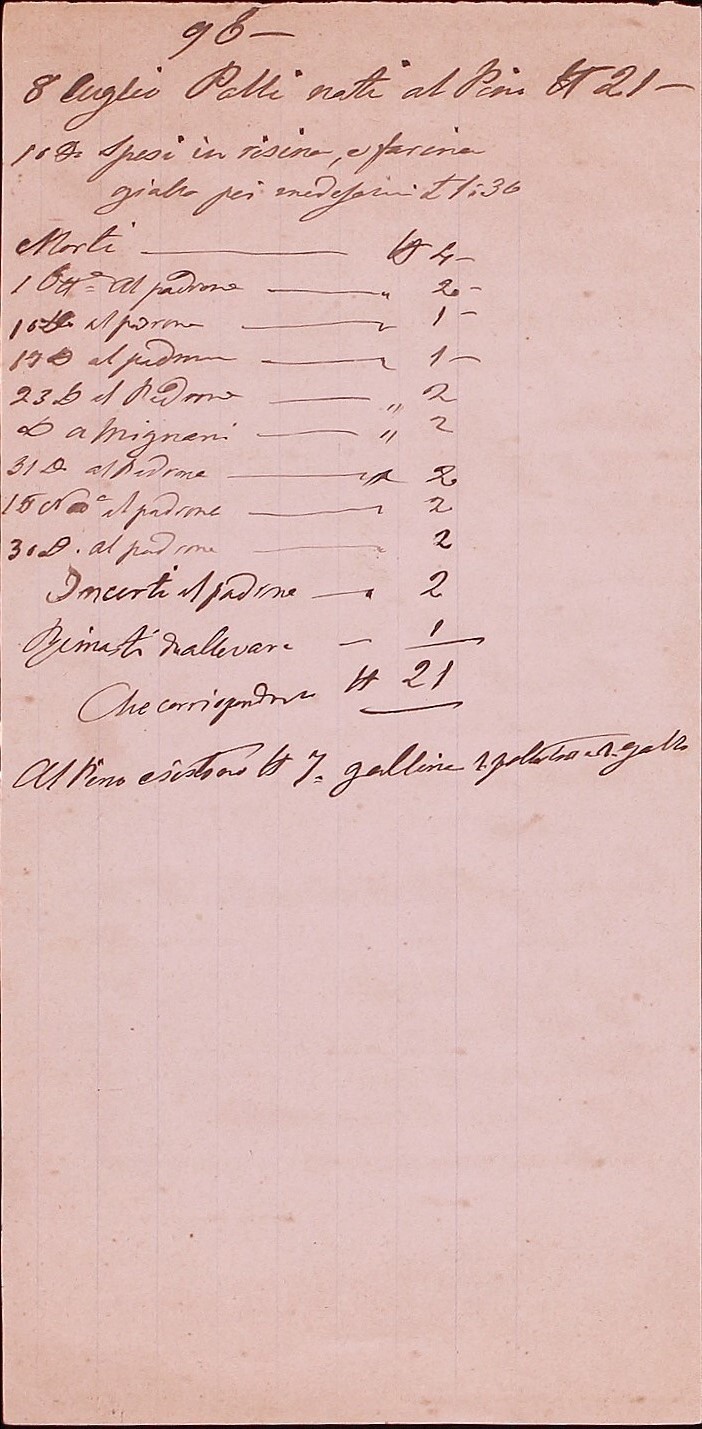 96 —
8 luglio Polli nati al Pino N 21 —
10 D. Spesi in risina, e farina
gialla pei medesimi £ 1:36
Morti — N 4 —
1 8bre al padrone — " 2 —
10 D. al padrone — 1 —
17 D al padrone — 1 —
23 D al Padrone — " 2
D a Mignani — " 2
31 D. al Padrone — " 2
15 Nov al padrone — 2
30 D. al padrone — " 2
Incerti al padrone — 2
Rimasti da allevare — 1
Che corrispondono N 21
Al Pino esistono N 7. galline 1. e 1. gallo